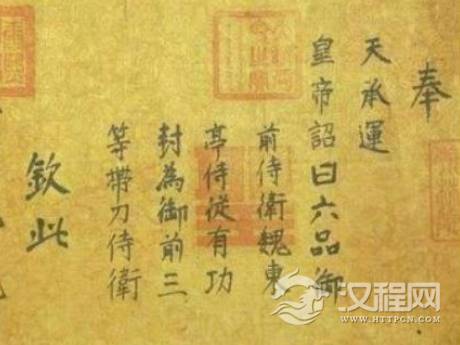 奉
天承運
皇帝詔曰六品御
前侍衛魏東
亭侍從有功
封為御前三
等帶刀侍衛
欽此
汉程网
WWW.HTTPCN.COM